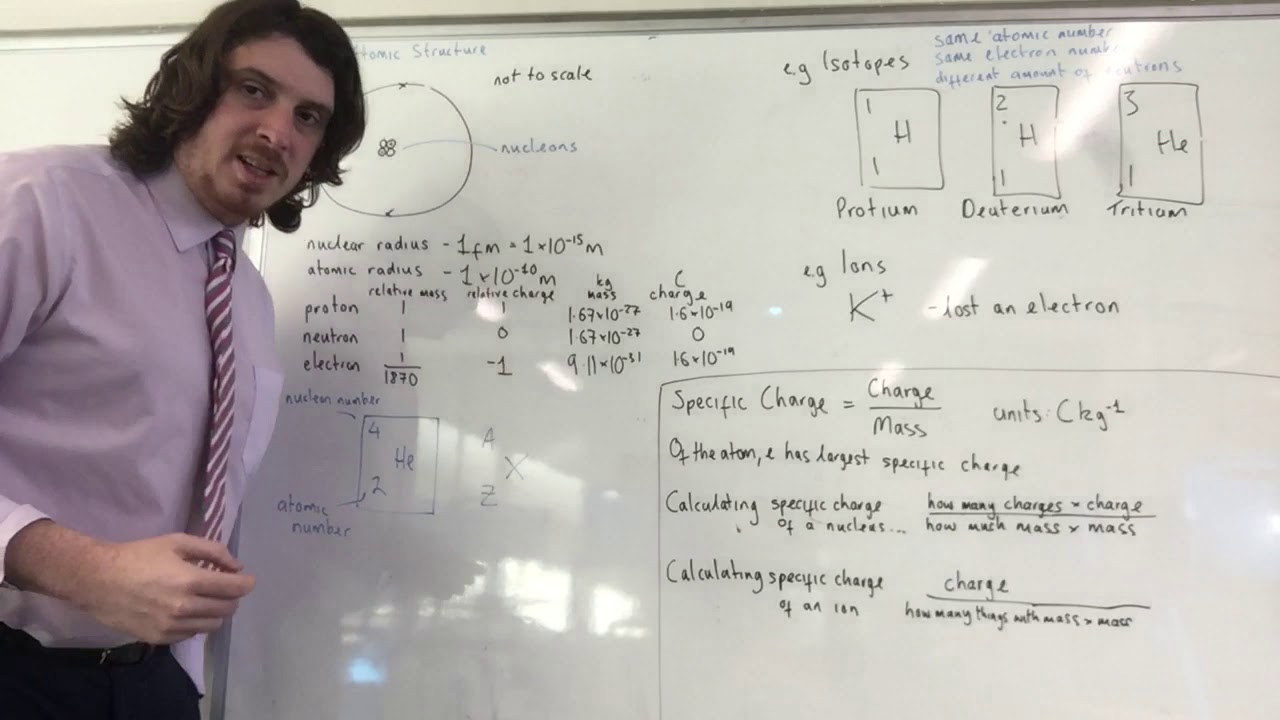 Atomic Structure
not to scale
nucleons
nuclear radius - 1fm = 1×10⁻¹⁵m
atomic radius - 1×10⁻¹⁰m
relative mass relative charge kg mass C charge
proton 1 1 1.67×10⁻²⁷ 1.6×10⁻¹⁹
neutron 1 0 1.67×10⁻²⁷ 0
electron 1/1870 -1 9.11×10⁻³¹ 1.6×10⁻¹⁹
nucleon number
4
He
2
atomic
number
A
X
Z
same atomic number
same electron number
different amount of neutrons
e.g Isotopes
1 H 1
2 H 1
3 He 1
Protium Deuterium Tritium
e.g Ions
K⁺ - lost an electron
Specific Charge = Charge/Mass units: C kg⁻¹
Of the atom, e has largest specific charge
Calculating specific charge
of a nucleus...
how many charges × charge
how much mass × mass
Calculating specific charge
of an ion
charge
how many things with mass × mass